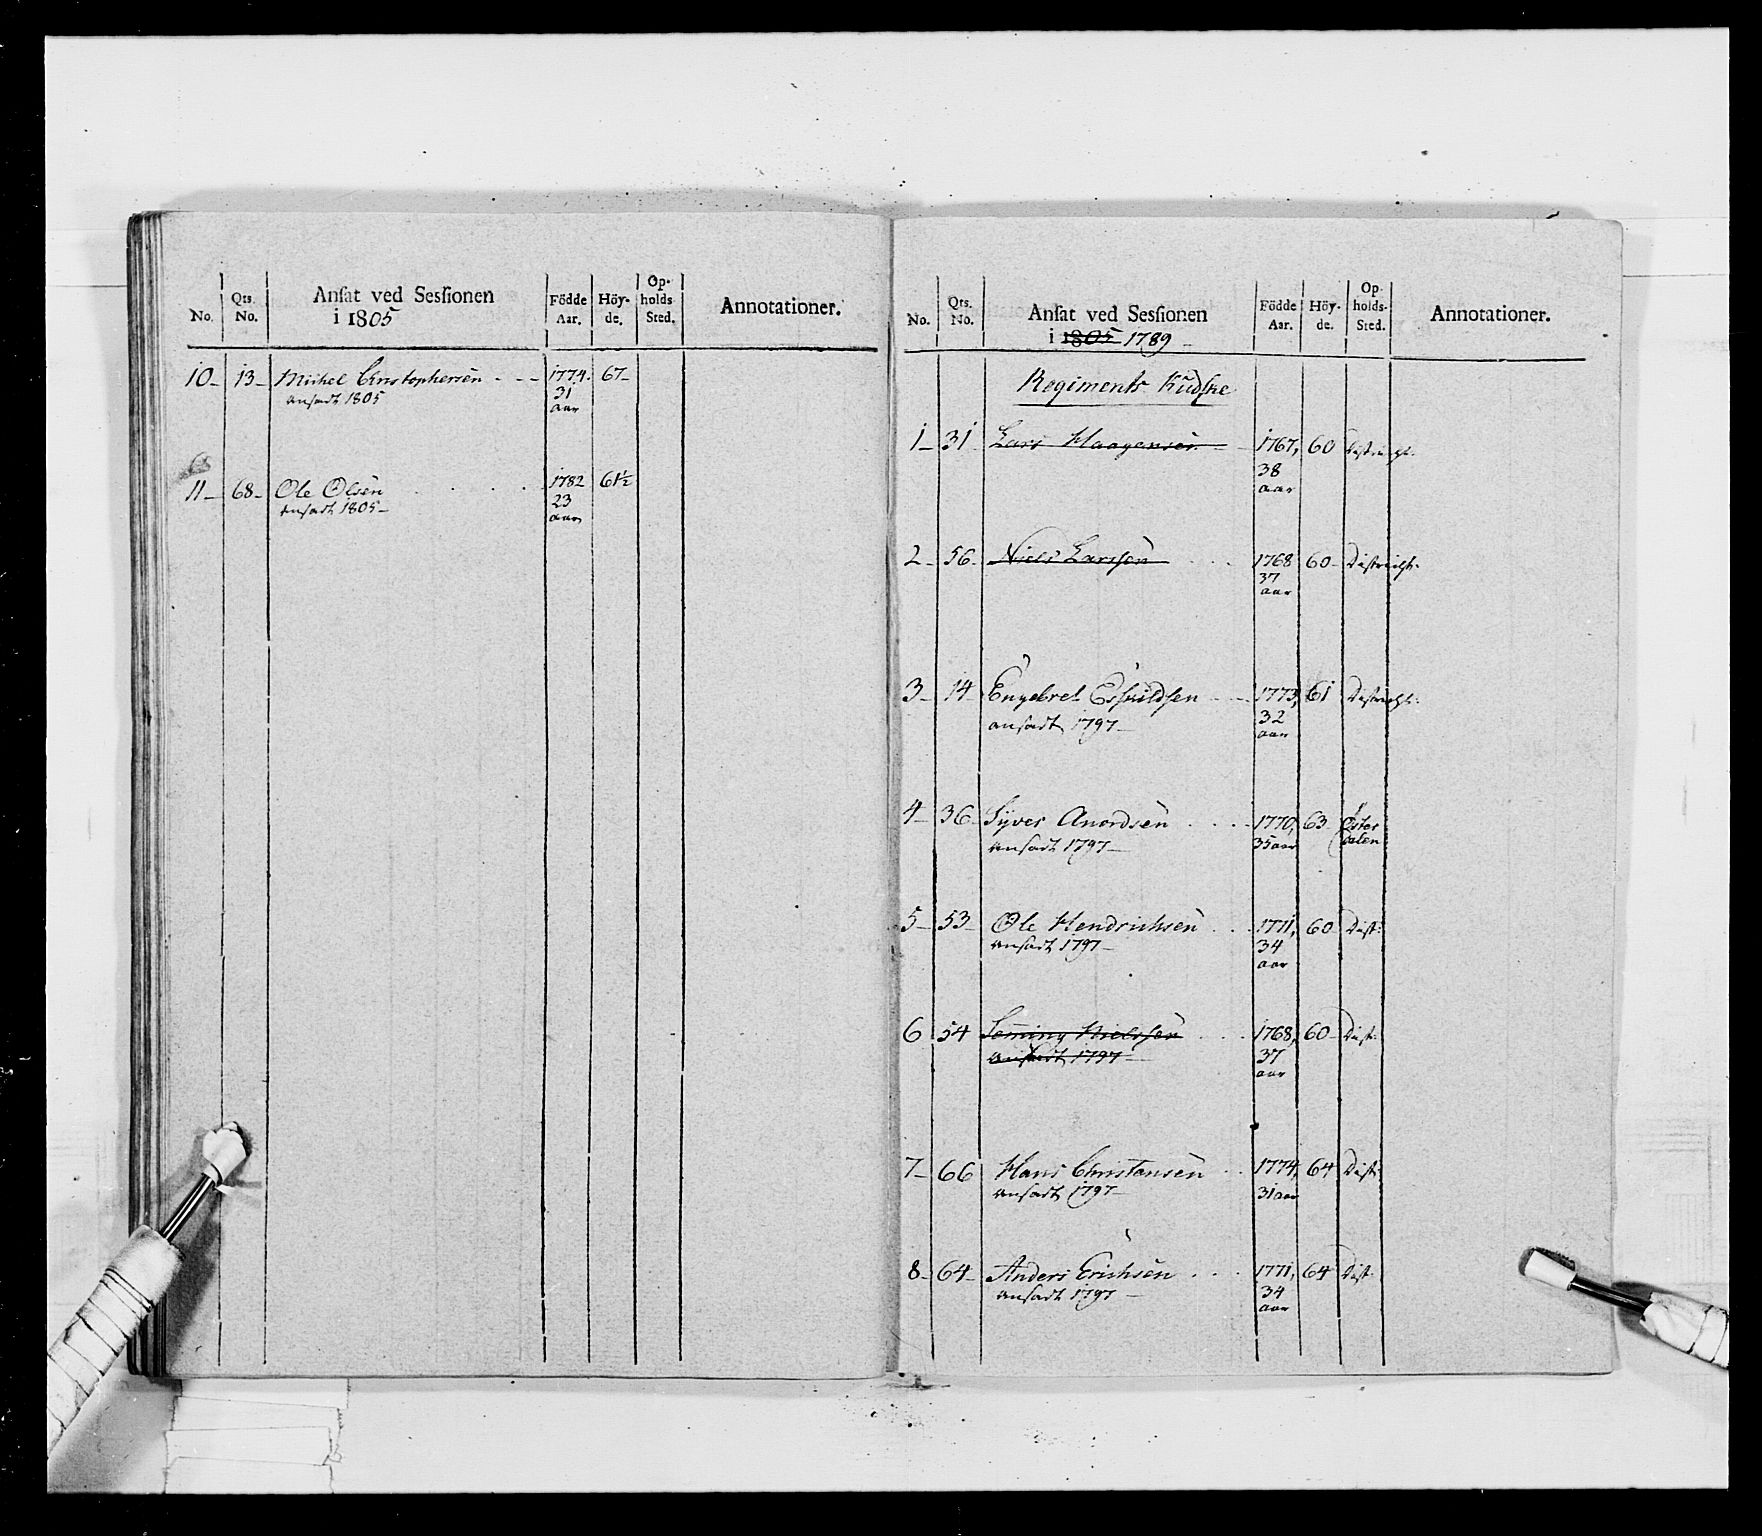 No. Qts. No. Ansat ved Sessionen i 1805 Födde Aar. Höy-de. Op-holds Sted. Annotationer.
10 13 Michel Christophersen 1774. 67
ansadt 1805 31
aar
11 68 Ole Olsen 1782 61½
ansadt 1805 23
aar
No. Qts. No. Ansat ved Sessionen i 1805 1789 Födde Aar. Höy-de. Op-holds-Sted. Annotationer.
Regiments Kudske
1 31 Lars Haagensen 1767, 60 Distrigt.
38
aar
2 56 Niels Larssen 1768 60 Distrigt.
37
aar
3 14 Engebret Eskildsen 1773, 61 Distrigt.
ansadt 1797 32
aar
4 36 Syver Anordsen 1770, 63 Öster
ansadt 1797 35 aar dalen
5 53 Ole Hendrichsen 1771, 60 Dist:
ansadt 1797 34
aar
6 54 Nielssen 1768, 60 Dist:
ansadt 1797 37
aar
7 66 Hans Christansen 1774, 64 Dist:
ansadt 1797 31 aar
8 64 Anders Erichsen 1771, 64 Dist:
ansadt 1797 34
aar